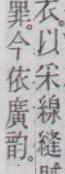 衣。以采線縫
罪。今依廣韵。